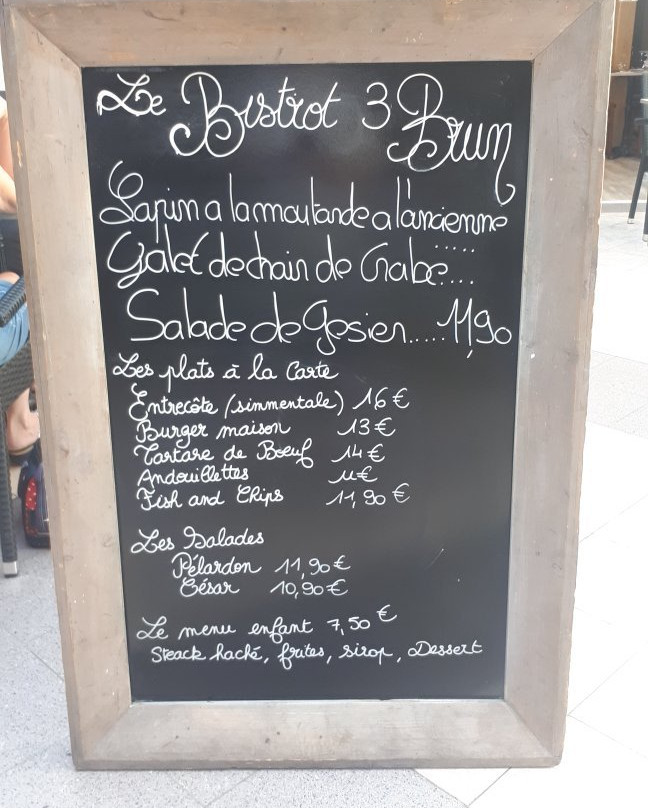 Le Bistrot 3 Brun
Lapin a la moutande a l'ancienne
Galet de chain de Crabe....
Salade de Gesier.....11,90
Les plats à la Carte
Entrecôte (simmentale) 16€
Burger maison 13€
Tartare de Bœuf 14€
Andouillettes 11€
Fish and Chips 11,90€
Les Salades
Pélardon 11,90€
César 10,90€
Le menu enfant 7,50€
Steack haché, frites, sirop, Dessert